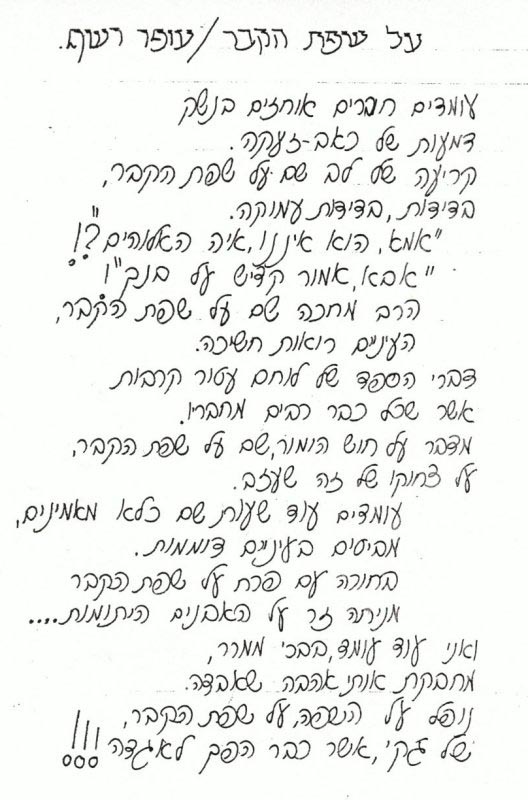 על שפת הקבר/עופר רשף.
עומדים חברים אוחזים בנשק
דמעות של כאב-זעקה.
קריעה של לב שם על שפת הקבר,
בדידות, בדידות עמוקה.
"אמא, הוא איננו, איה האלוהים"?!
"אבא, אמור קדיש על בנך"!
הרב מחכה שם על שפת הקבר,
העיניים רואות חשיכה.
דברי הספד של לוחם עטור קרבות
אשר שכל כבר רבים מחבריו.
מדבר על חוש הומור, שם על שפת הקבר,
על צחוקו של זה שעזב.
עומדים עוד שעות שם כלא מאמינים,
מביטים בעיניים דוממות.
בחורה עם פרח על שפת הקבר
מניחה זר על האבנים היתומות....
ואני עוד עומד, בבכי ממרר,
מחבקת אותי אהבה שאבדה.
נופל על השפה, על שפת הקבר,
של זקי, אשר כבר הפך לאגדה!!!